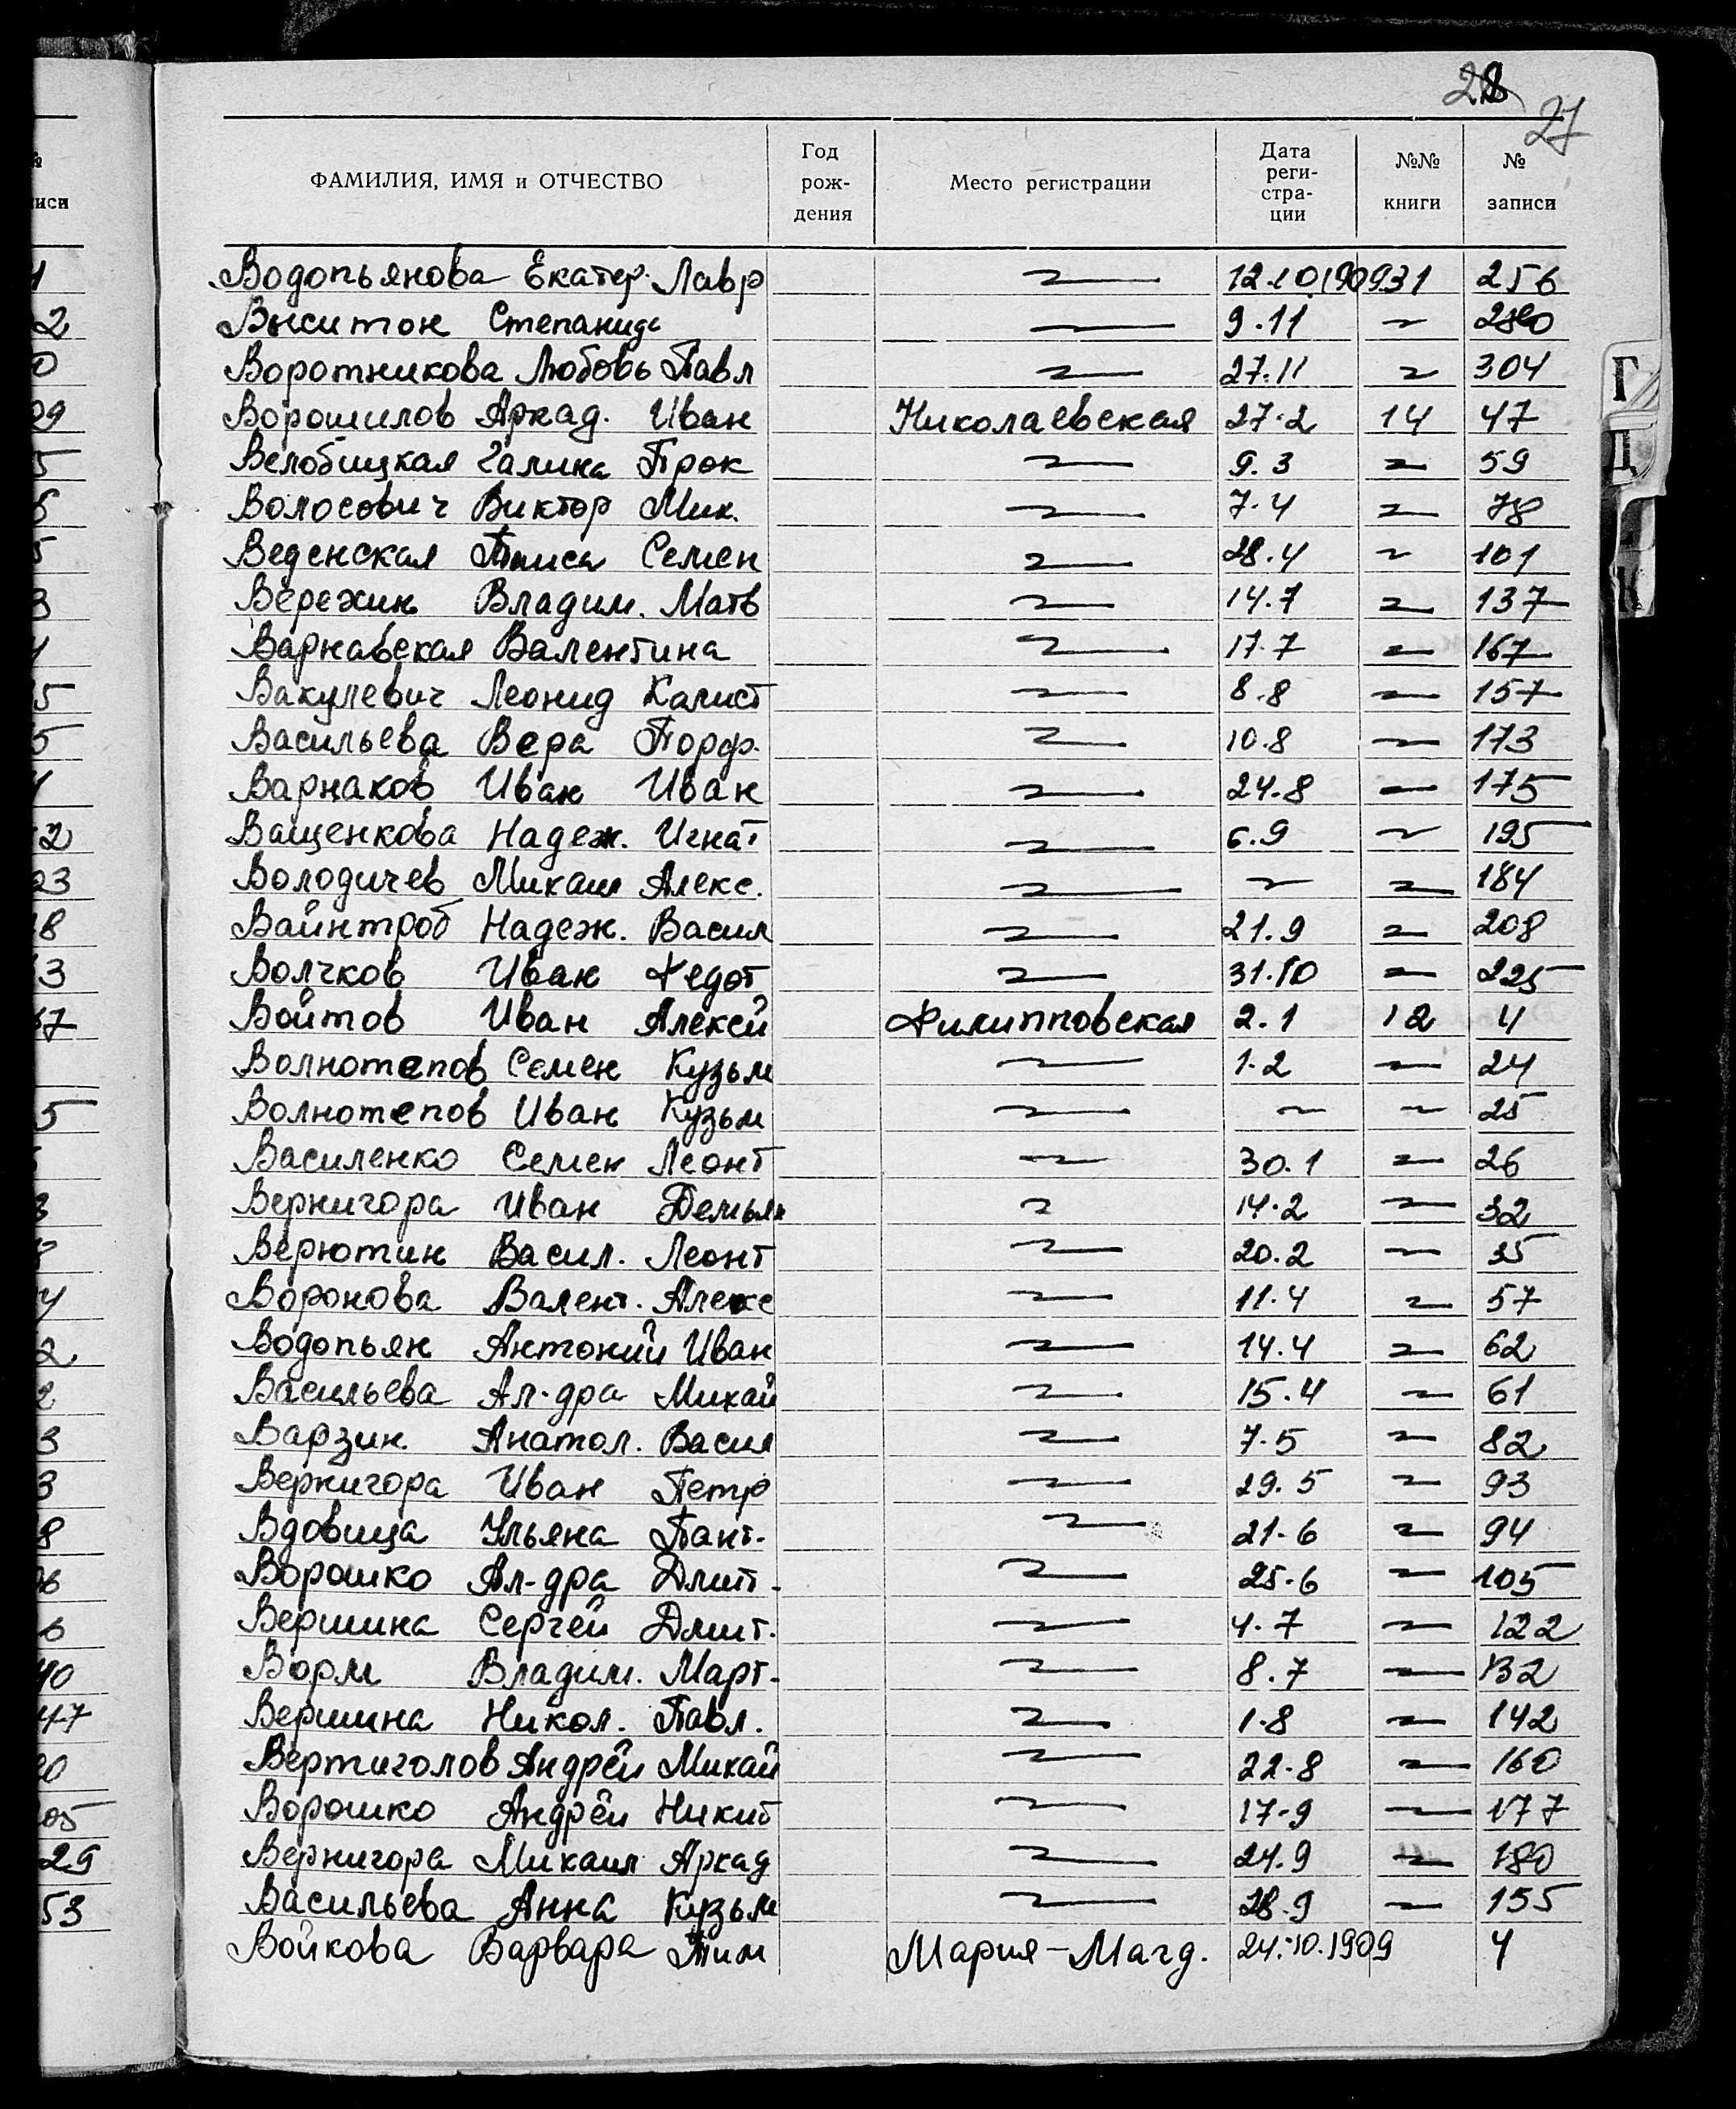 28
27
ФАМИЛИЯ, ИМЯ и ОТЧЕСТВО Год рождения Место регистрации Дата реги-стра-ции №№ книги № записи
Водопьянова Екатер. Лавр 12.10.1909 31 256
Выситон Степанида 9.11 280
Воротникова Любовь Павл 27.11 304
Ворошилов Аркад. Иван Николаевская 27.2 14 47
Велобицкая Галина Прок 9.3 59
Волосович Виктор Мих. 7.4 78
Веденская Таиса Семен 28.4 101
Вережин Владим. Матв 14.7 137
Варнавская Валентина 17.7 167
Вакулевич Леонид Калист 8.8 157
Васильева Вера Порф. 10.8 173
Варнаков Иван Иван 24.8 175
Ващенкова Надеж. Игнат 6.9 195
Володичев Михаил Алекс. 184
Вайнтроб Надеж. Васил 21.9 208
Волчков Иван Федот 31.10 225
Войтов Иван Алексей Филипповская 2.1 12 4
Волнотепов Семен Кузьм 1.2 24
Волнотепов Иван Кузьм 25
Василенко Семен Леонт 30.1 26
Вернигора Иван Демьян 14.2 32
Верютин Васил. Леонт 20.2 35
Воронова Валент. Алекс 11.4 57
Водопьян Антоний Иван 14.4 62
Васильева Ал-дра Михай 15.4 61
Варзин Анатол. Васил 7.5 82
Вернигора Иван Петр 29.5 93
Вдовица Ульяна Пант. 21.6 94
Ворошко Ал-дра Дмит. 25.6 105
Вершина Сергей Дмит. 4.7 122
Ворм Владим. Март. 8.7 132
Вершина Никол. Павл. 1.8 142
Вертиголов Андрей Михай 22.8 160
Ворошко Андрей Никит 17.9 177
Вернигора Михаил Аркад 24.9 180
Васильева Анна Кузьм 28.9 155
Войкова Варвара Тим Мария-Магд. 24.10.1909 4
Г
Д
К